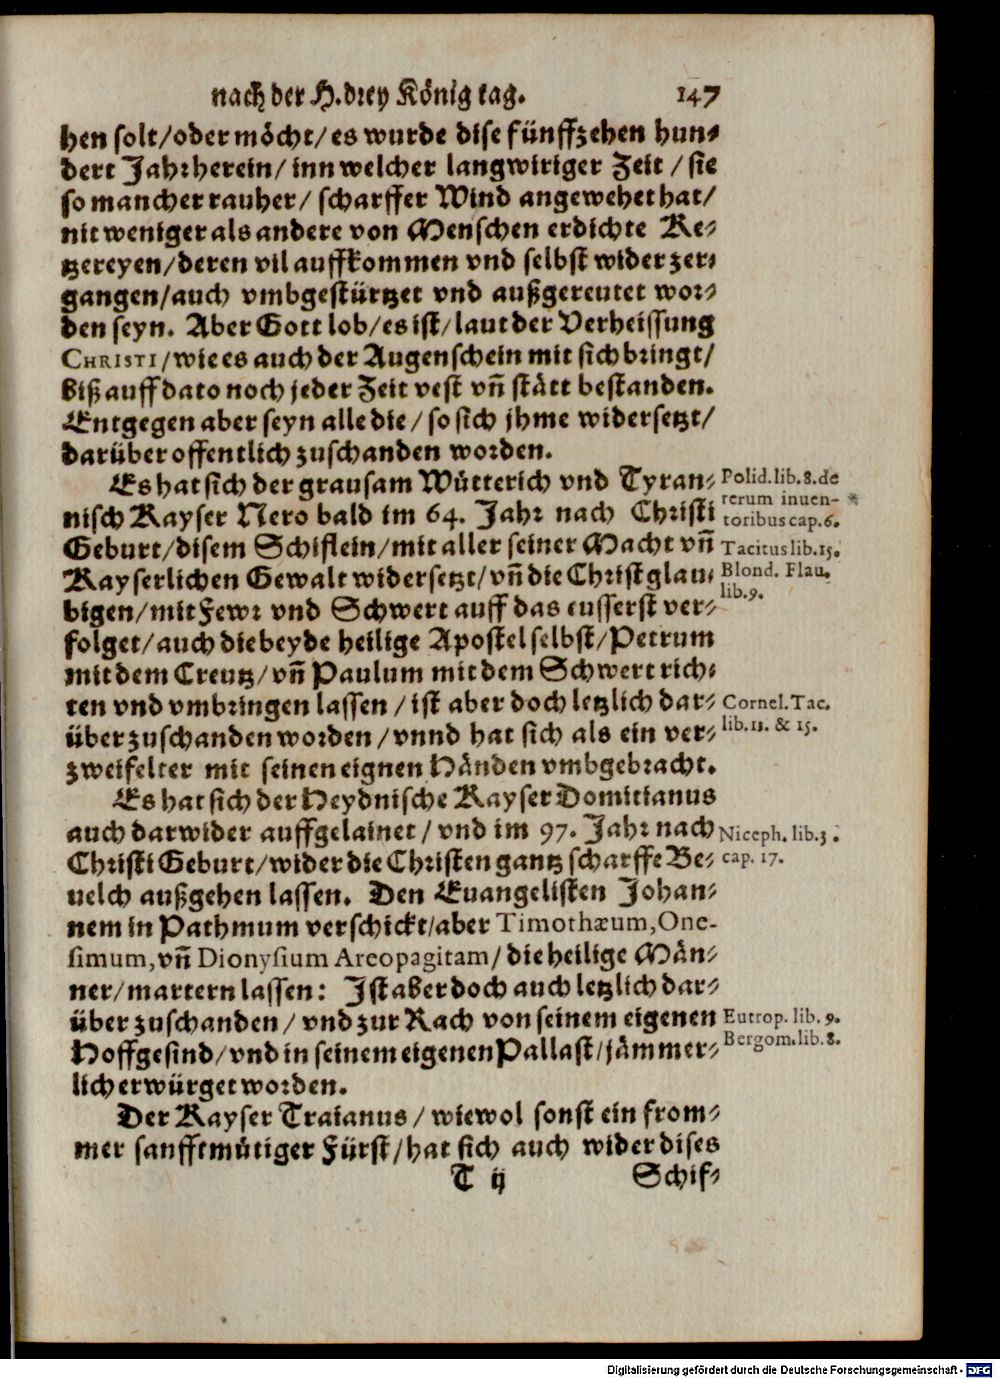 nach der H. drey König tag. 147
hen solt/ oder möcht/ es wurde dise fünffzehen hun-
dert Jahr herein/ inn welcher langwiriger Zeit / sie
so mancher rauher/ scharffer Wind angewehet hat/
nit weniger als andere von Menschen erdichte Ke-
tzereyen/ deren vil auffkommen vnd selbst wider zer-
gangen/ auch vmbgestürtzet vnd außgereutet wor-
den seyn. Aber Gott lob/ es ist/ laut der Verheissung
CHRISTI/ wie es auch der Augenschein mit sich bringt/
biß auff dato noch jeder Zeit vest vñ stätt bestanden.
Entgegen aber seyn alle die / so sich jhme widersetzt/
darüber offentlich zuschanden worden.
Es hat sich der grausam Wütterich vnd Tyran-
nisch Kayser Nero bald im 64. Jahr nach Christi
Geburt/ disem Schiflein/ mit aller seiner Macht vñ
Kayserlichen Gewalt widersetzt/ vñ die Christglau-
bigen/ mit Fewr vnd Schwert auff das eusserst ver-
folget/ auch die beyde heilige Apostel selbst/ Petrum
mit dem Creutz/ vñ Paulum mit dem Schwert rich-
ten vnd vmbringen lassen / ist aber doch letzlich dar-
über zuschanden worden / vnnd hat sich als ein ver-
zweifelter mit seinen eignen Händen vmbgebracht.
Polid. lib. 8. de
rerum inuen- *
toribus cap. 6.
Tacitus lib. 15.
Blond. Flau.
lib. 9.
Cornel. Tac.
lib. 13. & 15.
Es hat sich der Heydnische Kayser Domitianus
auch darwider auffgelainet / vnd im 97. Jahr nach
Christi Geburt/ wider die Christen gantz scharffe Be-
uelch außgehen lassen. Den Euangelisten Johan-
nem in Pathmum verschickt/ aber Timothæum, One-
simum, vñ Dionysium Areopagitam/ die heilige Män-
ner/ martern lassen: Jst aber doch auch letzlich dar-
über zuschanden / vnd zur Rach von seinem eigenen
Hoffgesind/ vnd in seinem eigenen Pallast/ jämmer-
lich erwürget worden.
Niceph. lib. 3.
cap. 17.
Eutrop. lib. 9.
Bergom. lib. 8.
Der Kayser Traianus / wiewol sonst ein from-
mer sanfftmütiger Fürst/ hat sich auch wider dises
T ij Schif-
Digitalisierung gefördert durch die Deutsche Forschungsgemeinschaft - DFG